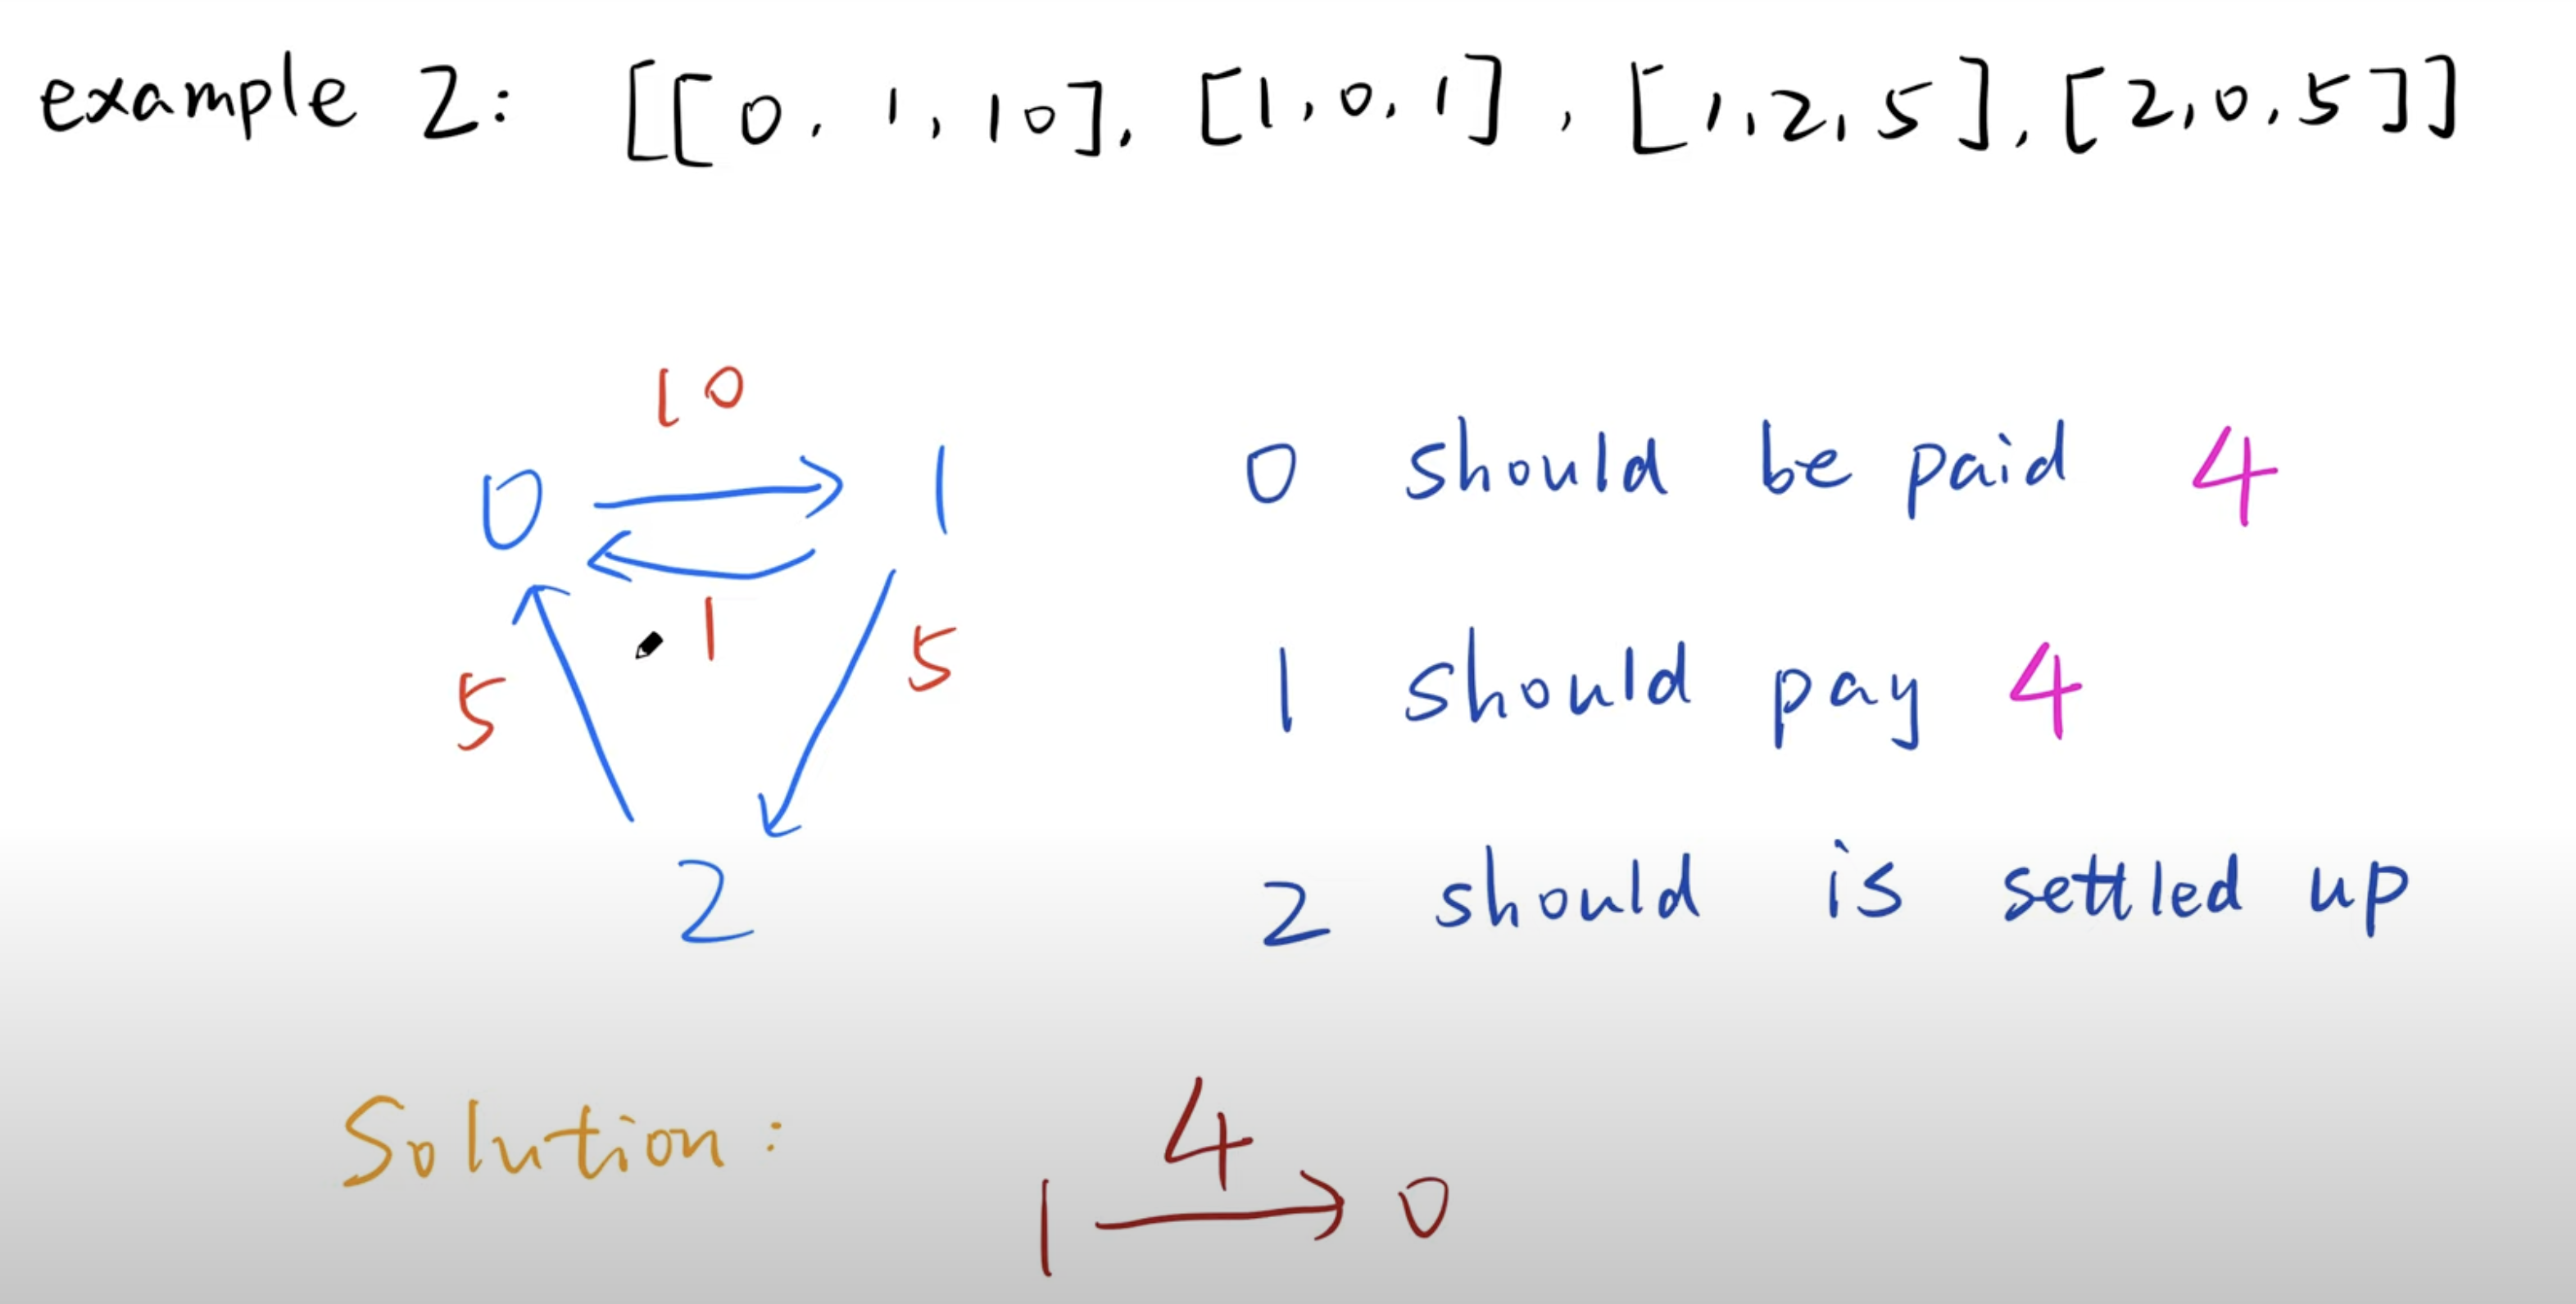 example 2: [[0, 1, 10], [1, 0, 1], [1, 2, 5], [2, 0, 5]]
10
0 1
1
5 5
2
0 should be paid 4
1 should pay 4
2 should is settled up
Solution:
4
1 0